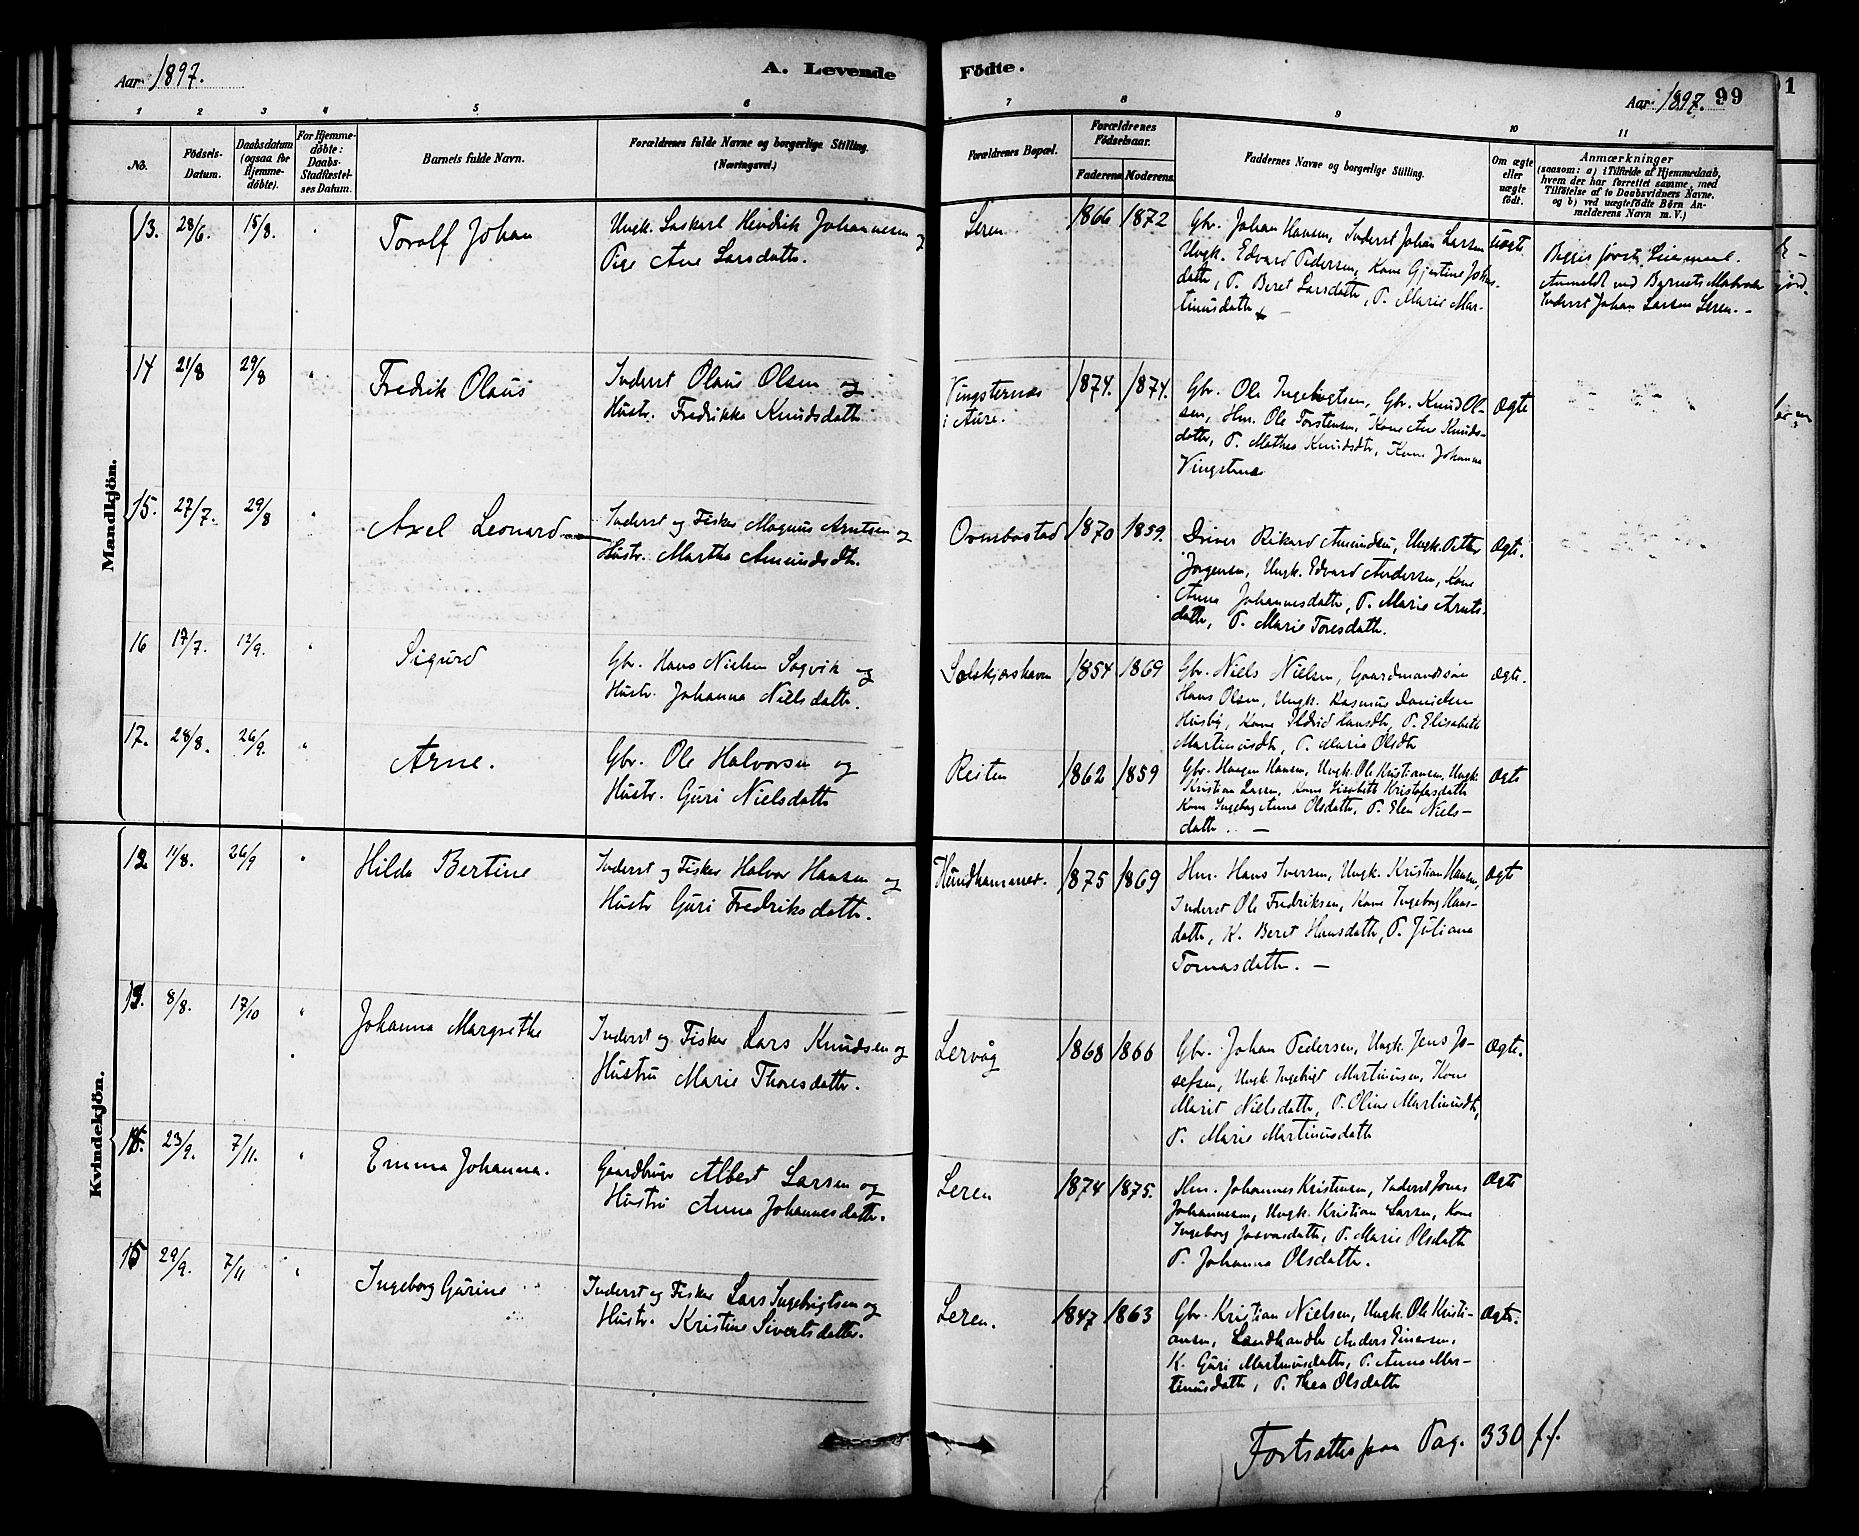 Aar 1897.
A. Levende
Födte.
Aar 1897. 99
1 2 3 4 5 6
7 8 9 10 11
No.
Födsels-Datum.
Daabsdatum (ogsaa for Hjemmedöbte).
For Hjemmedöbte: Daabs-Stadfæstelses Datum.
Barnets fulde Navn.
Forældrenes fulde Navne og borgerlige Stilling.
(Næringsvei.)
Forældrenes Bopæl.
Forældrenes Födselsaar.
Faderens Moderens
Faddernes Navne og borgerlige Stilling.
Om ægte eller uægte födt.
Anmærkninger
(saasom: a) i Tilfælde af Hjemmedaab,
hvem der har forrettet samme, med
Tilföielse af to Daabsvidners Navne,
og b) ved uægtefödte Börn An-
melderens Navn m. V.)
Mandkjön.
13. 28/6. 15/8. " Torolf Johan
Ungk. Laskarl Hendrik Johannesen og
Pige Ane Larsdatter.
Leren 1866 1872
Gbr. Johan Hansen, Inderst Johan Larsen
Ungk. Edvard Pedersen, Kone Gjertine Johns-
datter, P. Beret Larsdatter, P. Marie Mar-
tinusdatter
uægte.
Begges første Leiermaal.
Anmeldt ved Barnets Morfader
Inderst Johan Larsen Leren. -
14 21/8 29/8 " Fredrik Olaus
Inderst Olaus Olsen og
Hustr. Fredrikke Knudsdatter
Vingsternes
i Aure.
1874. 1874.
Gbr. Ole Ingebrigtsen, Gbr. Knud Ol-
sen, Hm. Ole Torstensen, Kone Ane Knuds-
datter, P. Mathea Knudsdtr, Kone Johanna
Vingsternes
Ægte
15. 27/7. 29/8 " Axel Leonard
Inderst og Fisker Magnus Arntsen og
Hustr. Martha Amundsdtr.
Ormbostad 1870 1859.
Driver Rikard Amundsen, Ungk. Petter
Jørgensen, Ungk. Edvard Andersen, Kone
Anna Johannesdatter, P. Marie Arnts-
datter, P. Marie Toresdatter.
Ægte.
16 17/7. 12/9. " Sigurd
Gbr. Hans Nielsen Sagvik og
Hustr. Johanna Nielsdatter.
Solskjærshavn 1854 1869
Gbr. Niels Nielsen, Gaardmandssøn
Hans Olsen, Ungk. Rasmus Danielsen
Husby, Kone Ildrid Hansdtr, P. Elisabeth
Martinusdtr, P. Marie Olsdtr
Ægte.
17. 28/8. 26/9. " Arne.
Gbr. Ole Halvorsen og
Hustr. Guri Nielsdatter
Reiten 1862 1859
Gbr. Haagen Hansen, Ungk. Ole Kristiansen, Ungk.
Kristian Larsen, Kone Lisabeth Kristofersdatter
Kone Ingeborg Anna Olsdatter, P. Elen Niels-
datter. . -
Ægte
Kvindekjön.
12 11/8. 26/9 " Hilda Bertine
Inderst og Fisker Halvor Hansen og
Hustr Guri Fredriksdatter.
Hundhammer. 1875 1869
Hm. Hans Iversen, Ungk. Kristian Hansen,
Inderst Ole Fredriksen, Kone Ingeborg Hans-
datter, K. Beret Hansdatter, P. Juliana
Tomasdatter. -
Ægte
13. 8/8. 17/10 " Johanna Margrethe
Inderst og Fisker Lars Knudsen og
Hustru Marie Thoresdatter.
Lervåg 1868 1866
Gbr. Johan Pedersen, Ungk. Jens Jo-
sefsen, Ungk. Ingebrigt Martinusen, Kone
Marit Nielsdatter, P. Oline Martinusdtr,
P. Marie Martinusdatter
Ægte.
23/9. 7/11. " Emma Johanna.
Gaardbruger Albert Larsen og
Hustru Anna Johannesdatter.
Leren 1874 1875.
Hm. Johannes Kristensen, Inderst Jonas
Johannesen, Ungk. Kristian Larsen, Kone
Ingeborg Josvasdatter, P. Marie Olsdatter
P. Johanna Olsdatter.
Ægte
15 29/9. 7/11 " Ingeborg Gurine
Inderst og Fisker Lars Ingebrigtsen og
Hustr. Kristine Sivertsdatter.
Leren. 1847 1863
Gbr. Kristian Nielsen, Ungk. Ole Kristi-
ansen, Landhandler Anders Einersen,
K. Guri Martinusdatter, P. Anna Mar-
tinusdatter, P. Thea Olsdatter
Ægte.
Fortsættes paa Pag. 330 ff.